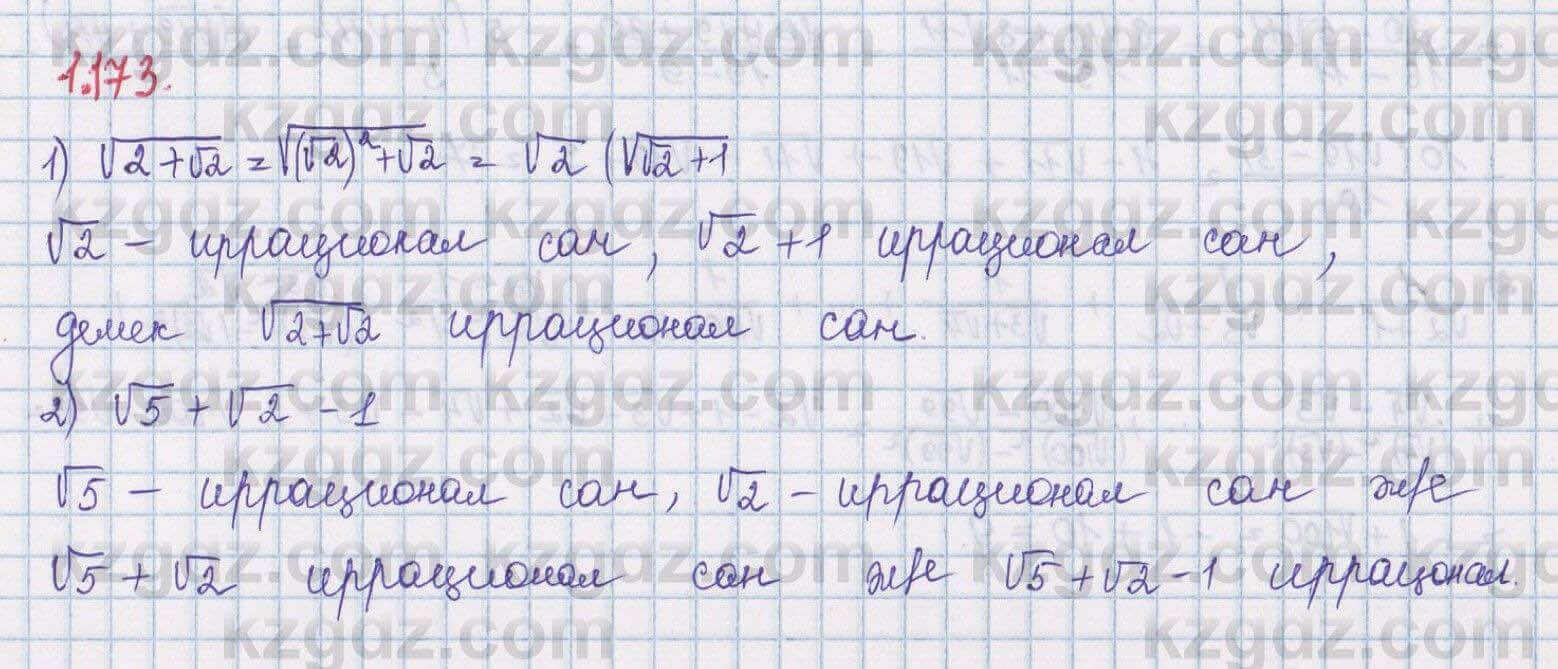 1.173.
1) √(2+√2) = √((√2)²+√2) = √2 (√(√2+1)
√2 – иррационал сан, √2+1 иррационал сан,
демек √(2+√2) иррационал сан.
2) √5 + √2 - 1
√5 – иррационал сан, √2 – иррационал сан ж/е
√5 + √2 иррационал сан ж/е √5+√2-1 иррацонал.